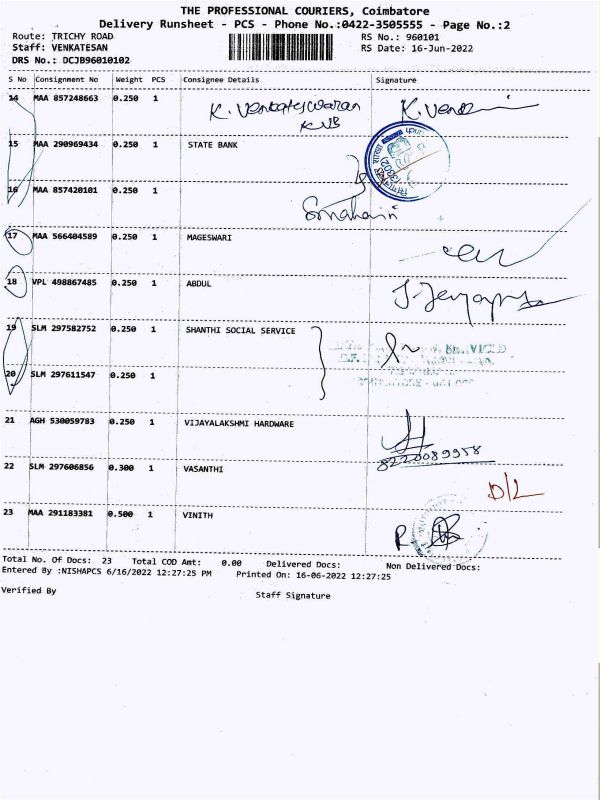 THE PROFESSIONAL COURIERS, Coimbatore
Delivery Runsheet - PCS - Phone No.:0422-3505555 - Page No.:2
Route: TRICHY ROAD RS No.: 960101
Staff: VENKATESAN RS Date: 16-Jun-2022
DRS No.: DCJB96010102
S No Consignment No Weight PCS Consignee Details Signature
14 MAA 857248663 0.250 1 K. Venkateswaran
KVB
15 MAA 290969434 0.250 1 STATE BANK
16 MAA 857420101 0.250 1
17 MAA 566404589 0.250 1 MAGESWARI
18 VPL 498867485 0.250 1 ABDUL
19 SLM 297582752 0.250 1 SHANTHI SOCIAL SERVICE
20 SLM 297611547 0.250 1
21 AGH 530059783 0.250 1 VIJAYALAKSHMI HARDWARE
8220089958
22 SLM 297606856 0.300 1 VASANTHI D/L
23 MAA 291183381 0.500 1 VINITH
Total No. Of Docs: 23 Total COD Amt: 0.00 Delivered Docs: Non Delivered Docs:
Entered By :NISHAPCS 6/16/2022 12:27:25 PM Printed On: 16-06-2022 12:27:25
Verified By Staff Signature